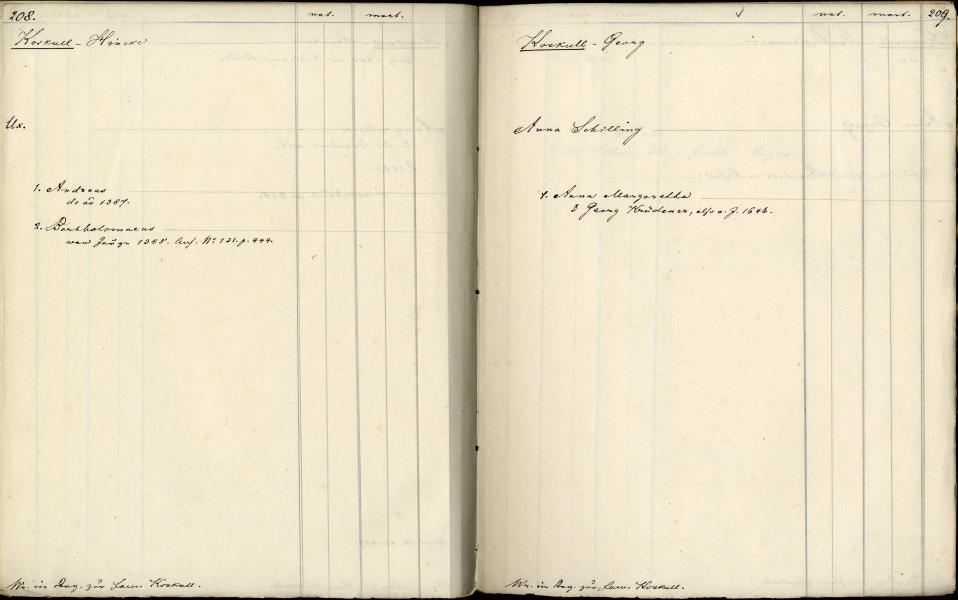 208.
nat. mort.
Koskull - Hincke
Ux.
1. Andreas
de ao 1387.
2. Bartholomaeus
1388. Auf. No 121. p. 444.
in Reg. zur Fam. Koskull.
nat. mort. 209.
Koskull - Georg
Anna Schilling
1. Anna Margaretha
Georg Krüdener, a. J. 1646.
in Reg. zur Fam. Koskull.